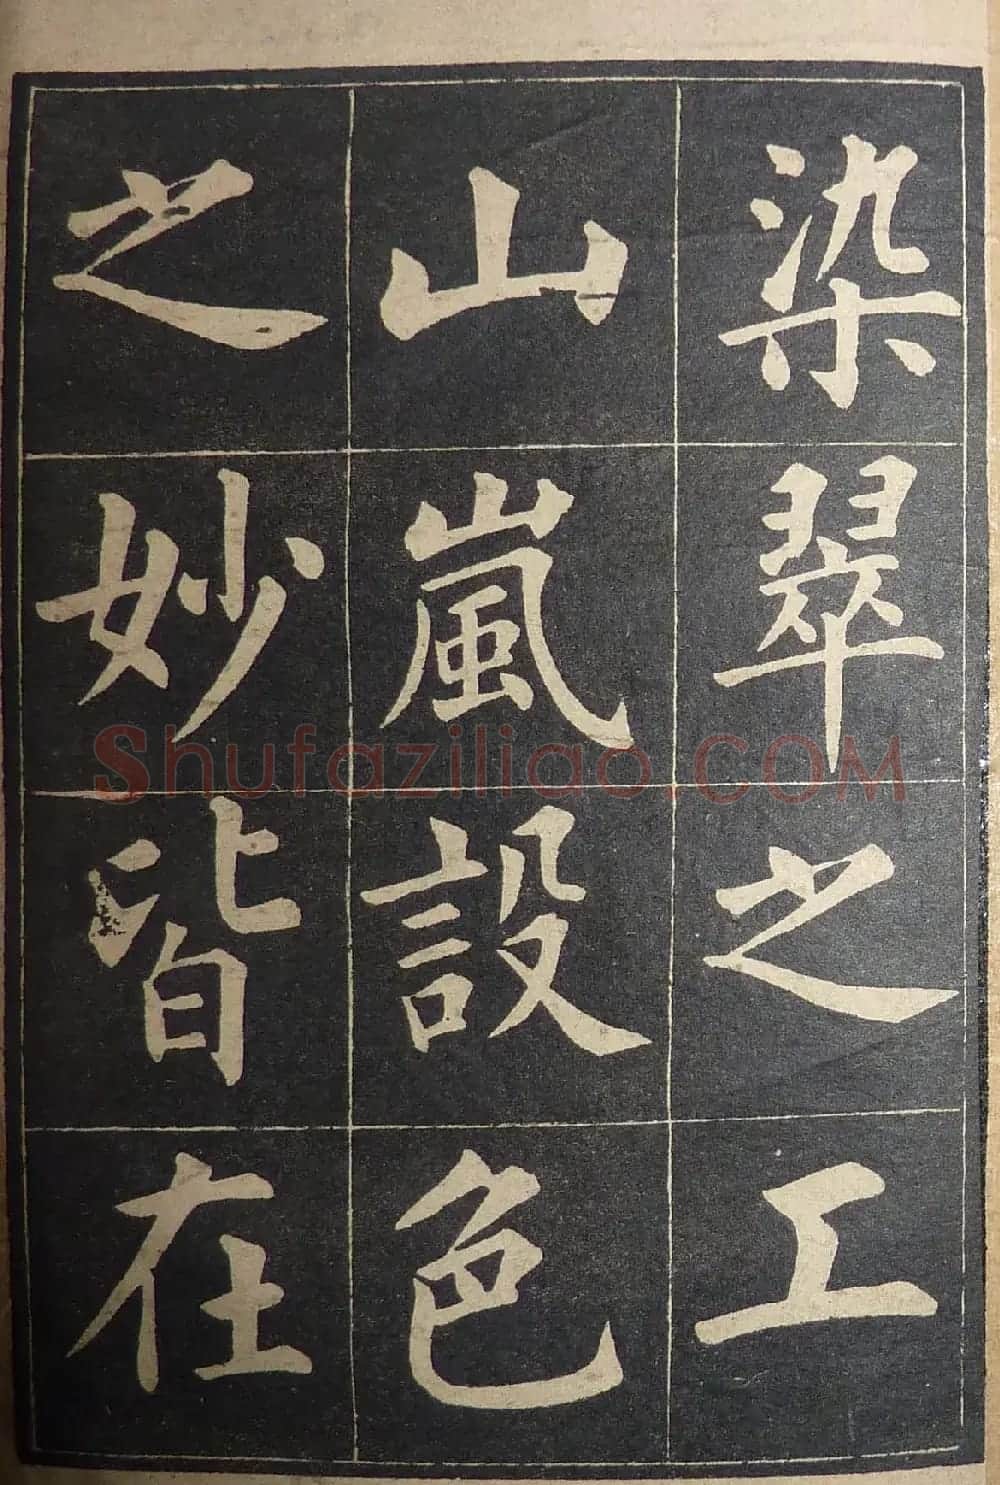 染翠之工
山嵐設色
之妙皆在
Shufaziliao.COM